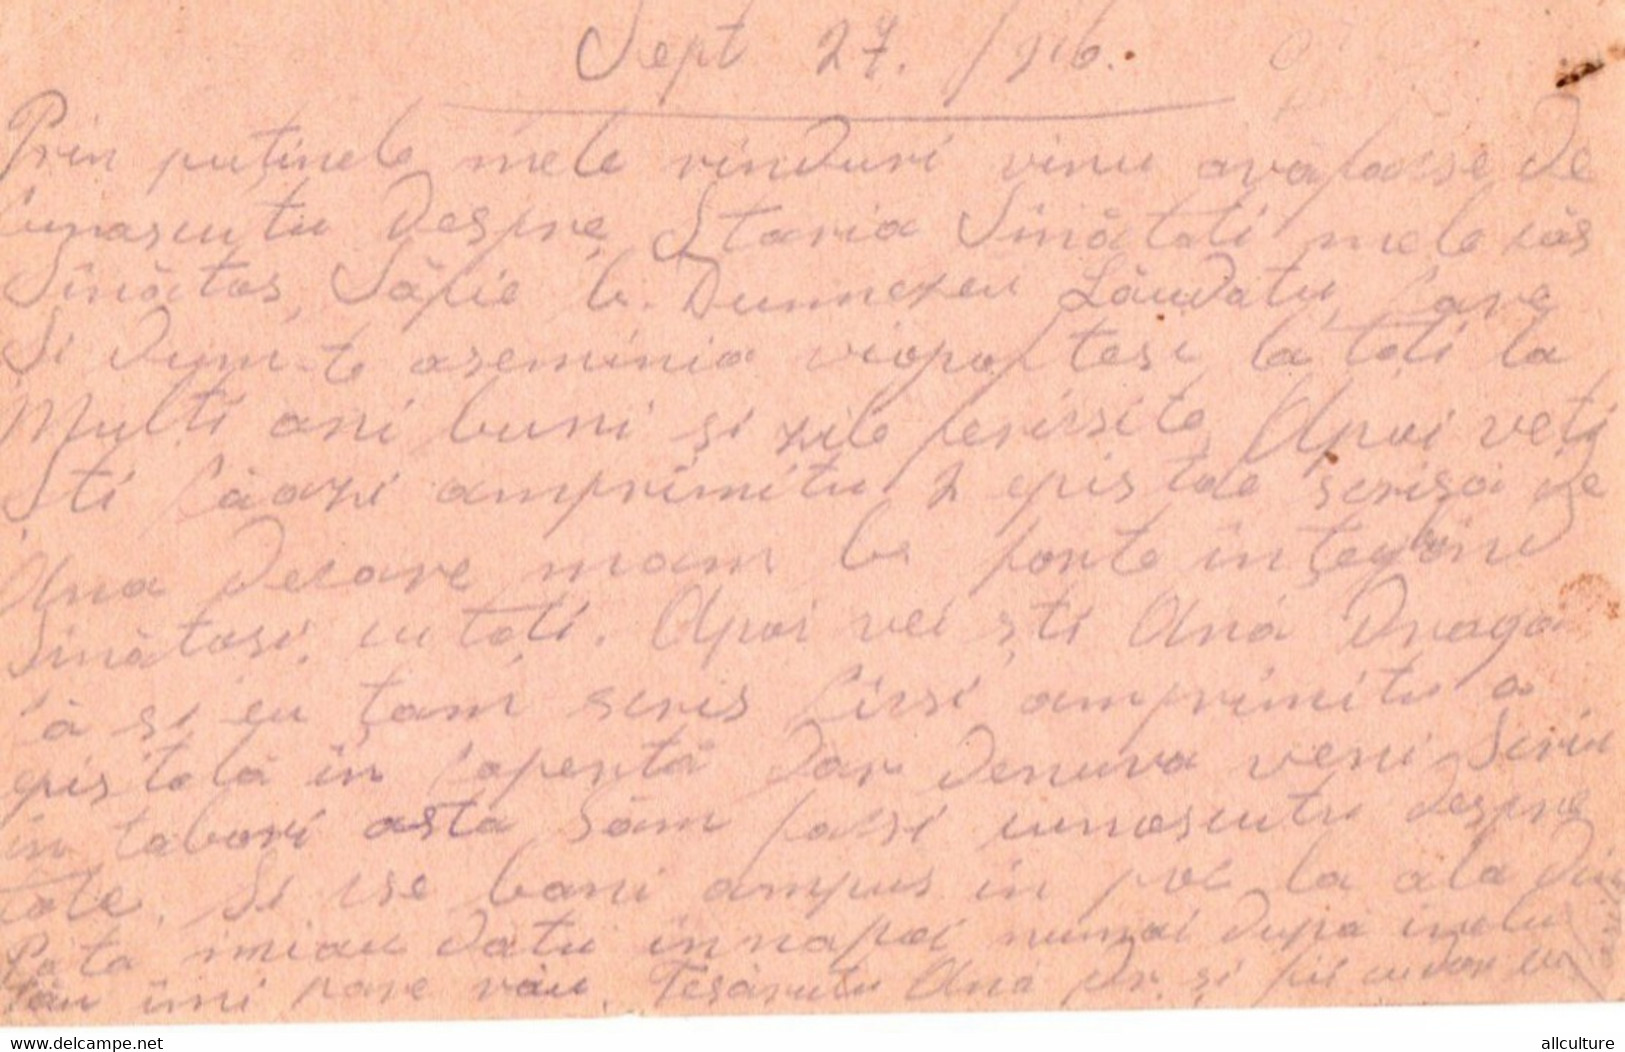 Sept 27. 1916.
Prin puținele mele rinduri vinu avăfacise de
Cunascutu Despre Staria Sinătati mele căs
Sinătas, Săfie la Dumnezeu Lăudatu, Care
Si Dum-te aseminia viopoftesc la toti la
Mulți ani buni și zile fericite Apoi veti
Sti Căazi amprimitu 2 epistole scrisă de
Ana Decare mam bucurat foarte
Sinătosi cu toți. Apoi vei ști Ana Draga
Că si eu țam scris Cirsi amprimitu o
epistolă in Copertă Dar Denuva veni Scriu
in tabori asta Săm facsi cunoscutu Despre
tote. Si cse bani ampus in poc la ala Din
Pata imiau Datu innapoi numai Dupa inelu
tău imi pare rău. Teșărutu Ana Dr. și
www.delcampe.net
allculture